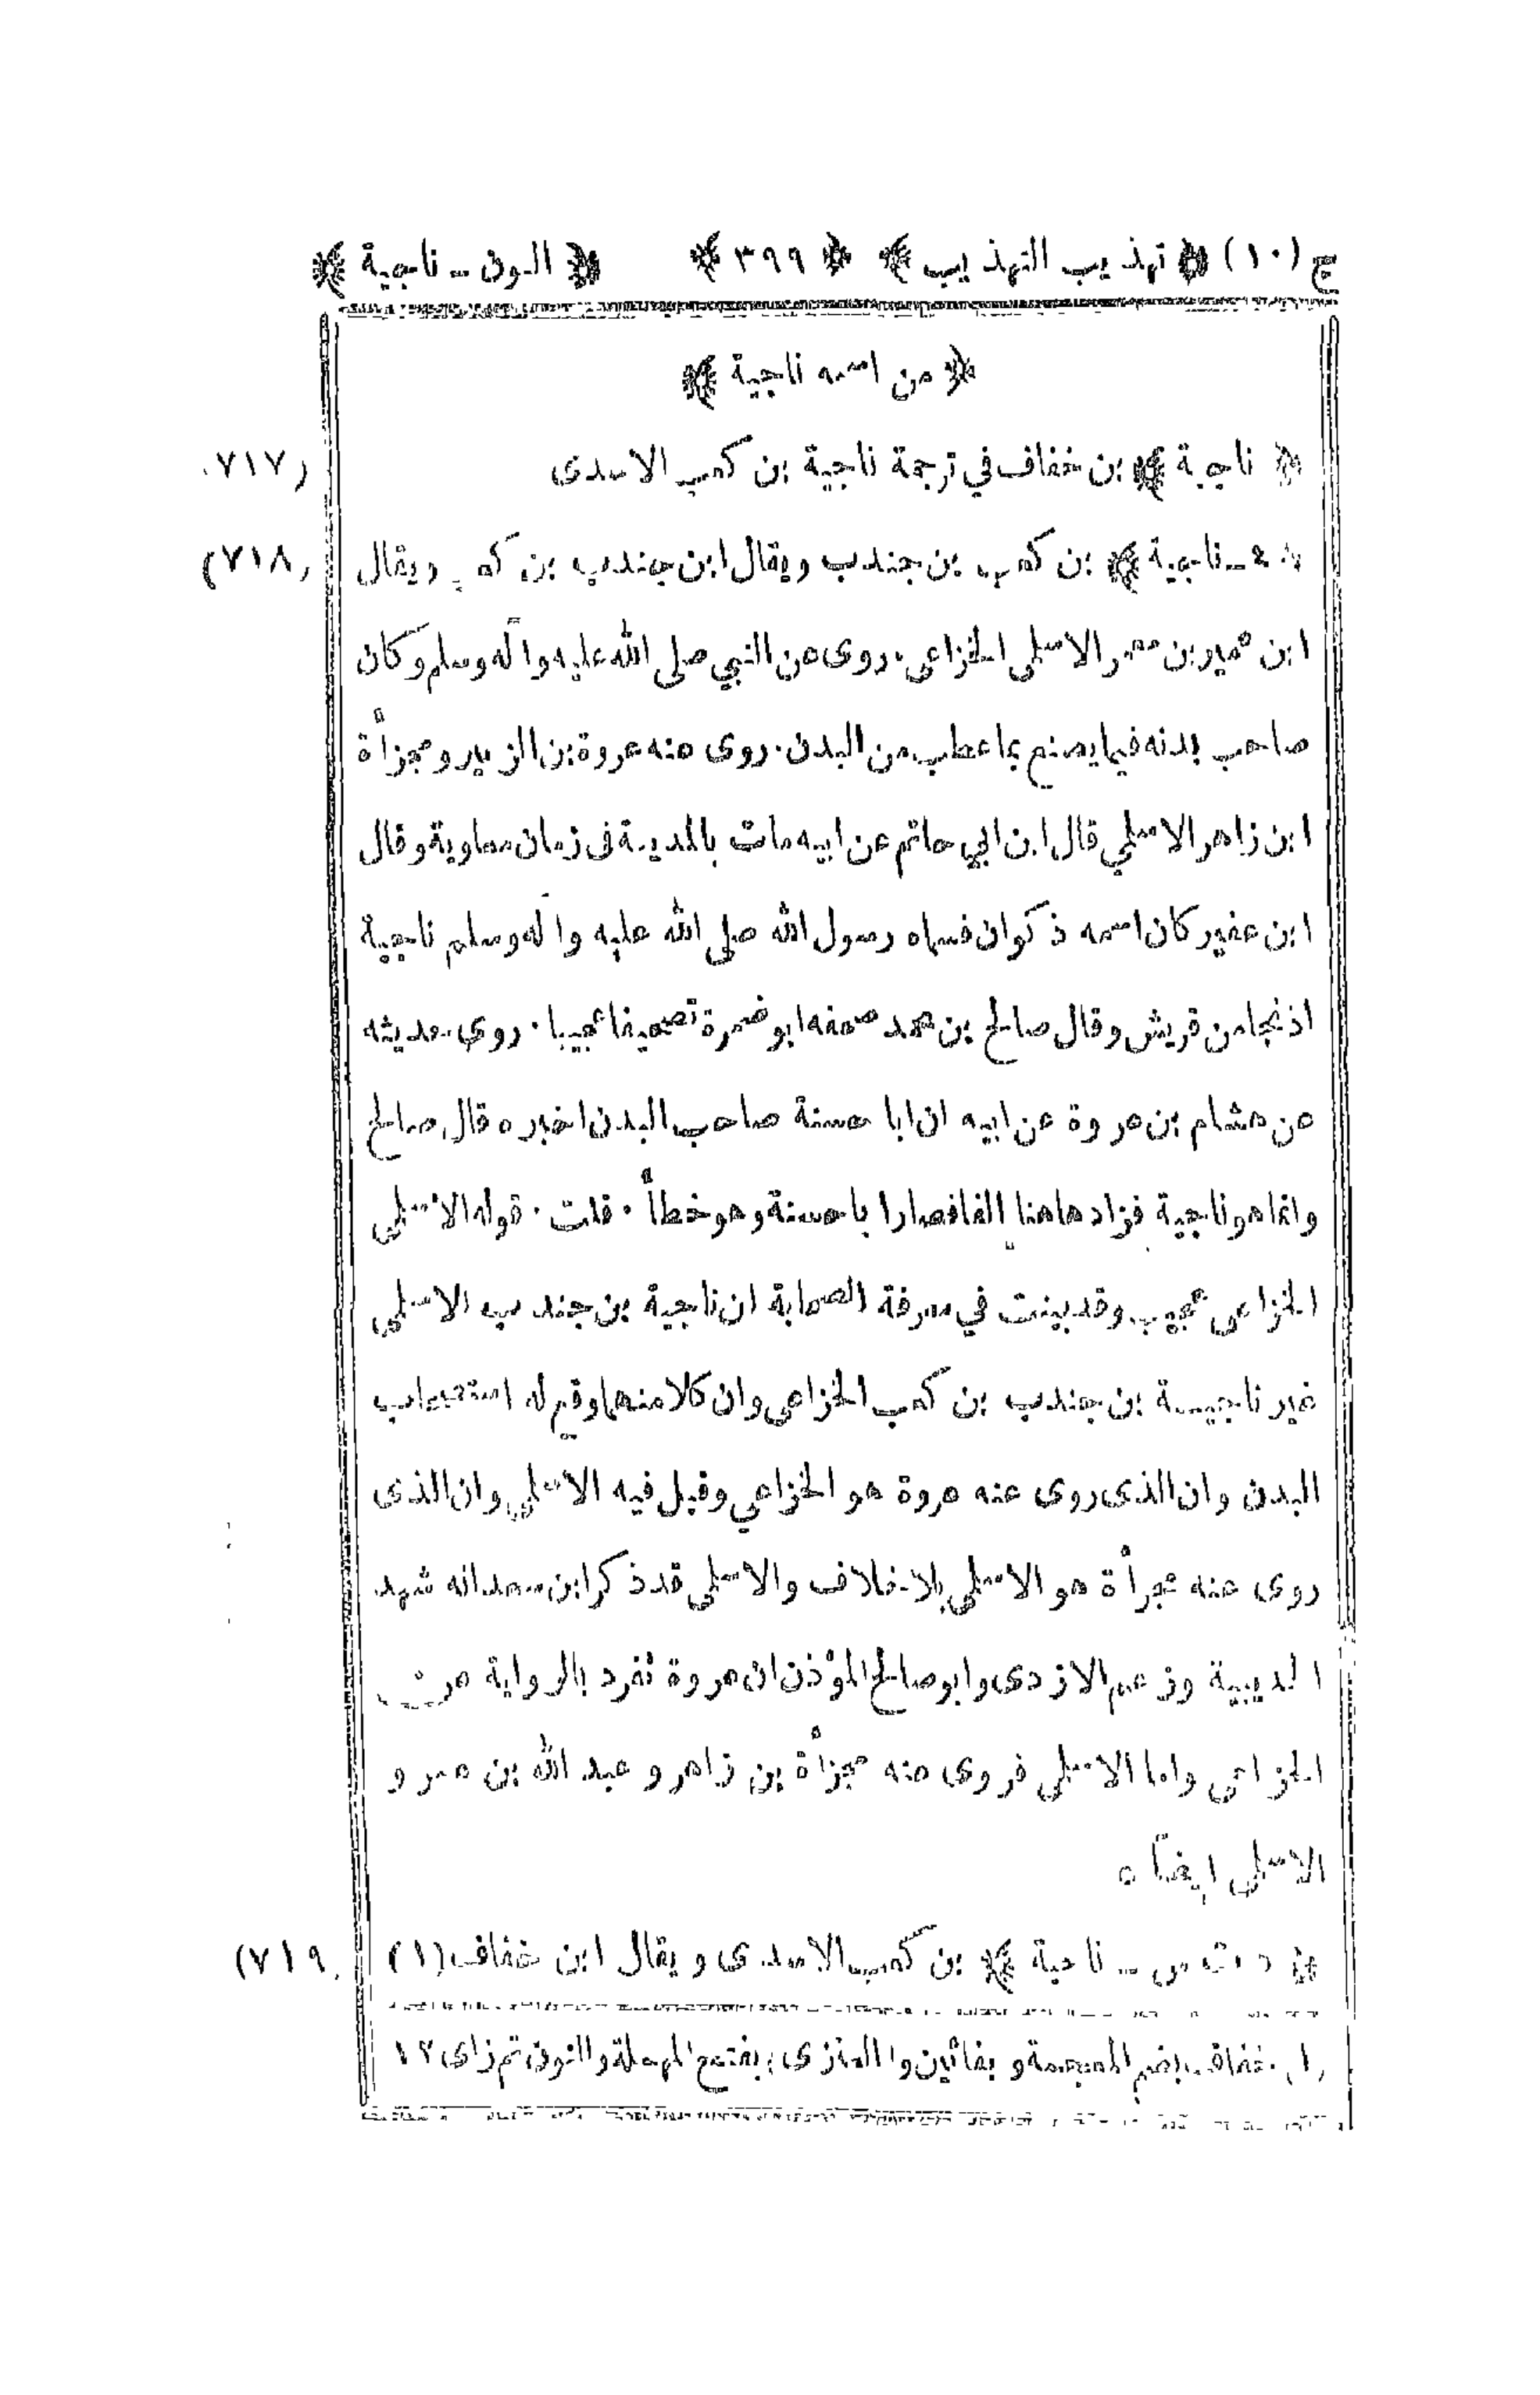 ج (١٠) ﴿ تهذيب التهذيب ﴾ ﴿ ٣٩٩ ﴾ ﴿ النون - ناجية ﴾
﴿ من اسمه ناجية ﴾
﴿ ناجية ﴾ بن خفاف في ترجمة ناجية بن كعب الاسدى (٧١٧)
﴿ ٤ - ناجية ﴾ بن كعب بن جندب ويقال ابن جندب بن كعب ويقال (٧١٨)
ابن عمير بن معمر الاسلمى الخزاعى. روى عن النبي صلى الله عليه وآله وسلم وكان
صاحب بدنه فيما يصنع بما عطب من البدن. روى عنه عروة بن الزبير ومجزأة
ابن زاهر الاسلمي قال ابن ابي حاتم عن ابيه مات بالمدينة فى زمان معاوية وقال
ابن عفير كان اسمه ذكوان فسماه رسول الله صلى الله عليه وآله وسلم ناجية
اذ نجا من قريش وقال صالح بن محمد صحفه ابو ضمرة تصحيفا عجيبا. روى حديثه
عن هشام بن عروة عن ابيه ان ابا حسنة صاحب البدن اخبره قال صالح
وانما هو ناجية فزاد هاهنا الفا فصار ابا حسنة وهو خطأ. قلت. قوله الاسلمى
الخزاعى عجيب وقد بينت في معرفة الصحابة ان ناجية بن جندب الاسلمى
غير ناجية بن جندب بن كعب الخزاعى وان كلا منهما وقع له استصحاب
البدن وان الذى روى عنه عروة هو الخزاعي وقيل فيه الاسلمي وان الذى
روى عنه مجزأة هو الاسلمي بلا خلاف والاسلمى قد ذكر ابن سعد انه شهد
الحديبية وزعم الازدى وابو صالح المؤذن ان عروة تفرد بالرواية عن
الخزاعى واما الاسلمى فروى عنه مجزأة بن زاهر وعبد الله بن عمرو
الاسلمى ايضاً ه
﴿ د ت س - ناجية ﴾ بن كعب الاسدى ويقال ابن خفاف (١) (٧١٩)
(١) خفاف بضم المعجمة وبفائين والعنزى بفتح المهملة والنون ثم زاى ١٢